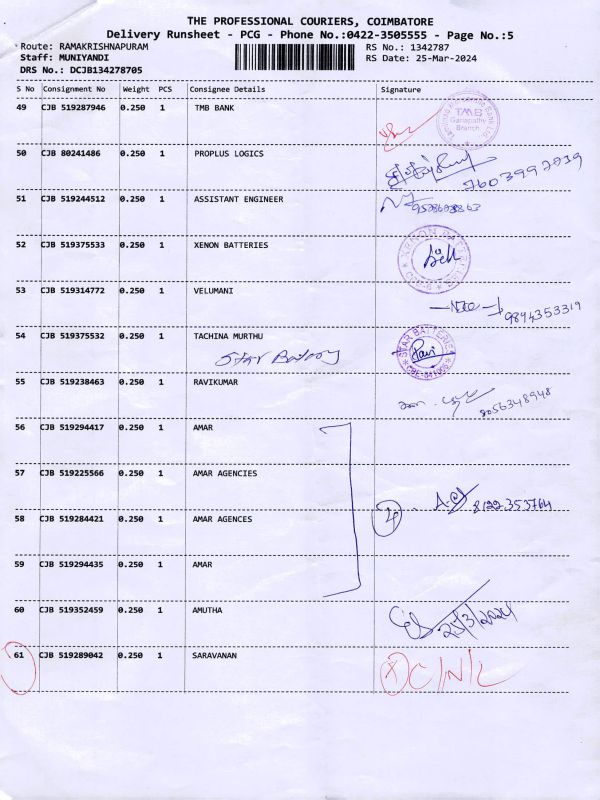 THE PROFESSIONAL COURIERS, COIMBATORE
Delivery Runsheet - PCG - Phone No.:0422-3505555 - Page No.:5
Route: RAMAKRISHNAPURAM RS No.: 1342787
Staff: MUNIYANDI RS Date: 25-Mar-2024
DRS No.: DCJB134278705
S No Consignment No Weight PCS Consignee Details Signature
49 CJB 519287946 0.250 1 TMB BANK
TMB
Ganapathy
Branch
50 CJB 80241486 0.250 1 PROPLUS LOGICS
51 CJB 519244512 0.250 1 ASSISTANT ENGINEER
52 CJB 519375533 0.250 1 XENON BATTERIES
53 CJB 519314772 0.250 1 VELUMANI
9894353319
54 CJB 519375532 0.250 1 TACHINA MURTHU STAR BATTERIES
Star Battery Ravi
55 CJB 519238463 0.250 1 RAVIKUMAR
8056348948
56 CJB 519294417 0.250 1 AMAR
57 CJB 519225566 0.250 1 AMAR AGENCIES
4 8122353764
58 CJB 519284421 0.250 1 AMAR AGENCES
59 CJB 519294435 0.250 1 AMAR
60 CJB 519352459 0.250 1 AMUTHA
25/3/2024
61 CJB 519289042 0.250 1 SARAVANAN
X C/N/L